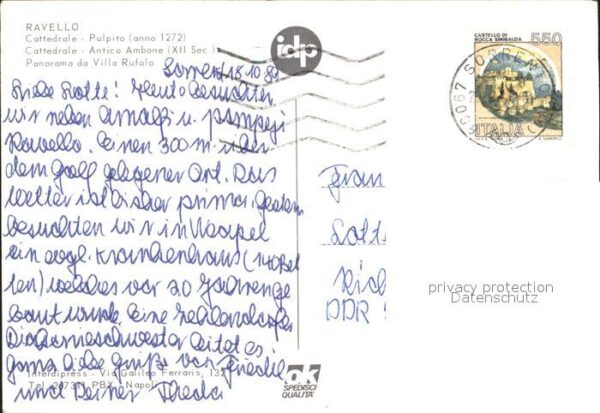 RAVELLO
Cattedrale - Pulpito (anno 1272)
Cattedrale - Antico Ambone (XII Sec.)
Panorama da Villa Rufolo
idp
CASTELLO DI
ROCCA SINIBALDA
550
ITALIA
80067 SORRENTO
Sorrent 18.10.89
Liebe Lotte! Heute besuchten
wir neben Amalfi u. Pompeji
Ravello. Einen 300 m über
dem Golf gelegener Ort. Das
Wetter ist bisher prima. Gestern
besuchten wir in Neapel
ein evgl. Krankenhaus (140 Bet
ten) welches vor 20 Jahren ge
baut wurde. Eine
Diakonieschwester leitet es.
Ganz liebe Grüße von
und Deiner
Frau
Lott
Rich
DDR
privacy protection
Datenschutz
Interdipress - Via Galileo Ferraris, 132
Tel. 267311 PBX - Napoli
ok
SPEDISCI
QUALITA'